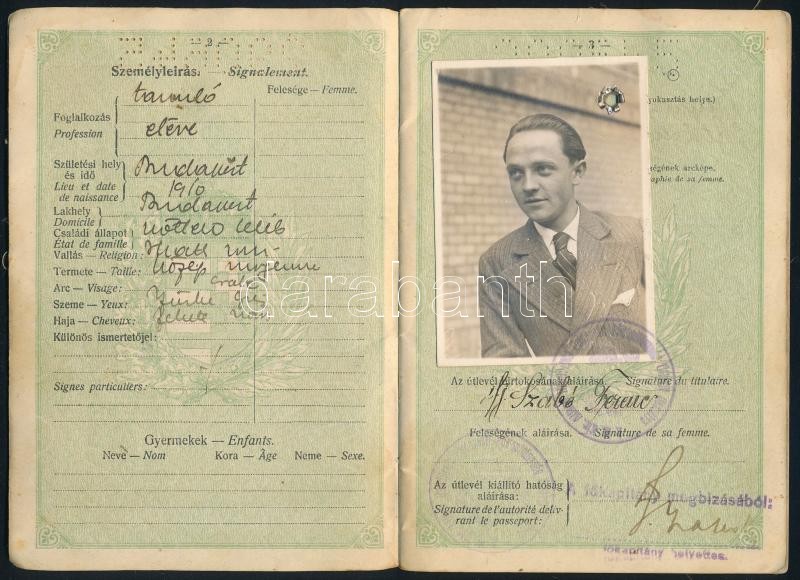 — 2 —
Személyleírás. — Signalement.
Felesége — Femme.
Foglalkozás tanuló
Profession élève
Születési hely és idő Budapest
Lieu et date de naissance 1910
Lakhely Budapest
Domicile
Családi állapot nőtlen célib
État de famille
Vallás — Religion:
Termete — Taille: közép moyenne
Arc — Visage: ovale
Szeme — Yeux: szürke gris
Haja — Cheveux: fekete noir
Különös ismertetőjel:
Signes particuliers:
Gyermekek — Enfants.
Neve — Nom Kora — Âge Neme — Sexe.
— 3 —
yukasztás helye.)
ségének arcképe.
phie de sa femme.
darabanth
Az útlevél birtokosának aláírása. — Signature du titulaire.
ifj Szabó Ferenc
Feleségének aláírása. — Signature de sa femme.
Az útlevél kiállító hatóság aláírása:
Signature de l'autorité delivrant le passeport:
A főkapitány megbízásából:
főkapitány helyettes.